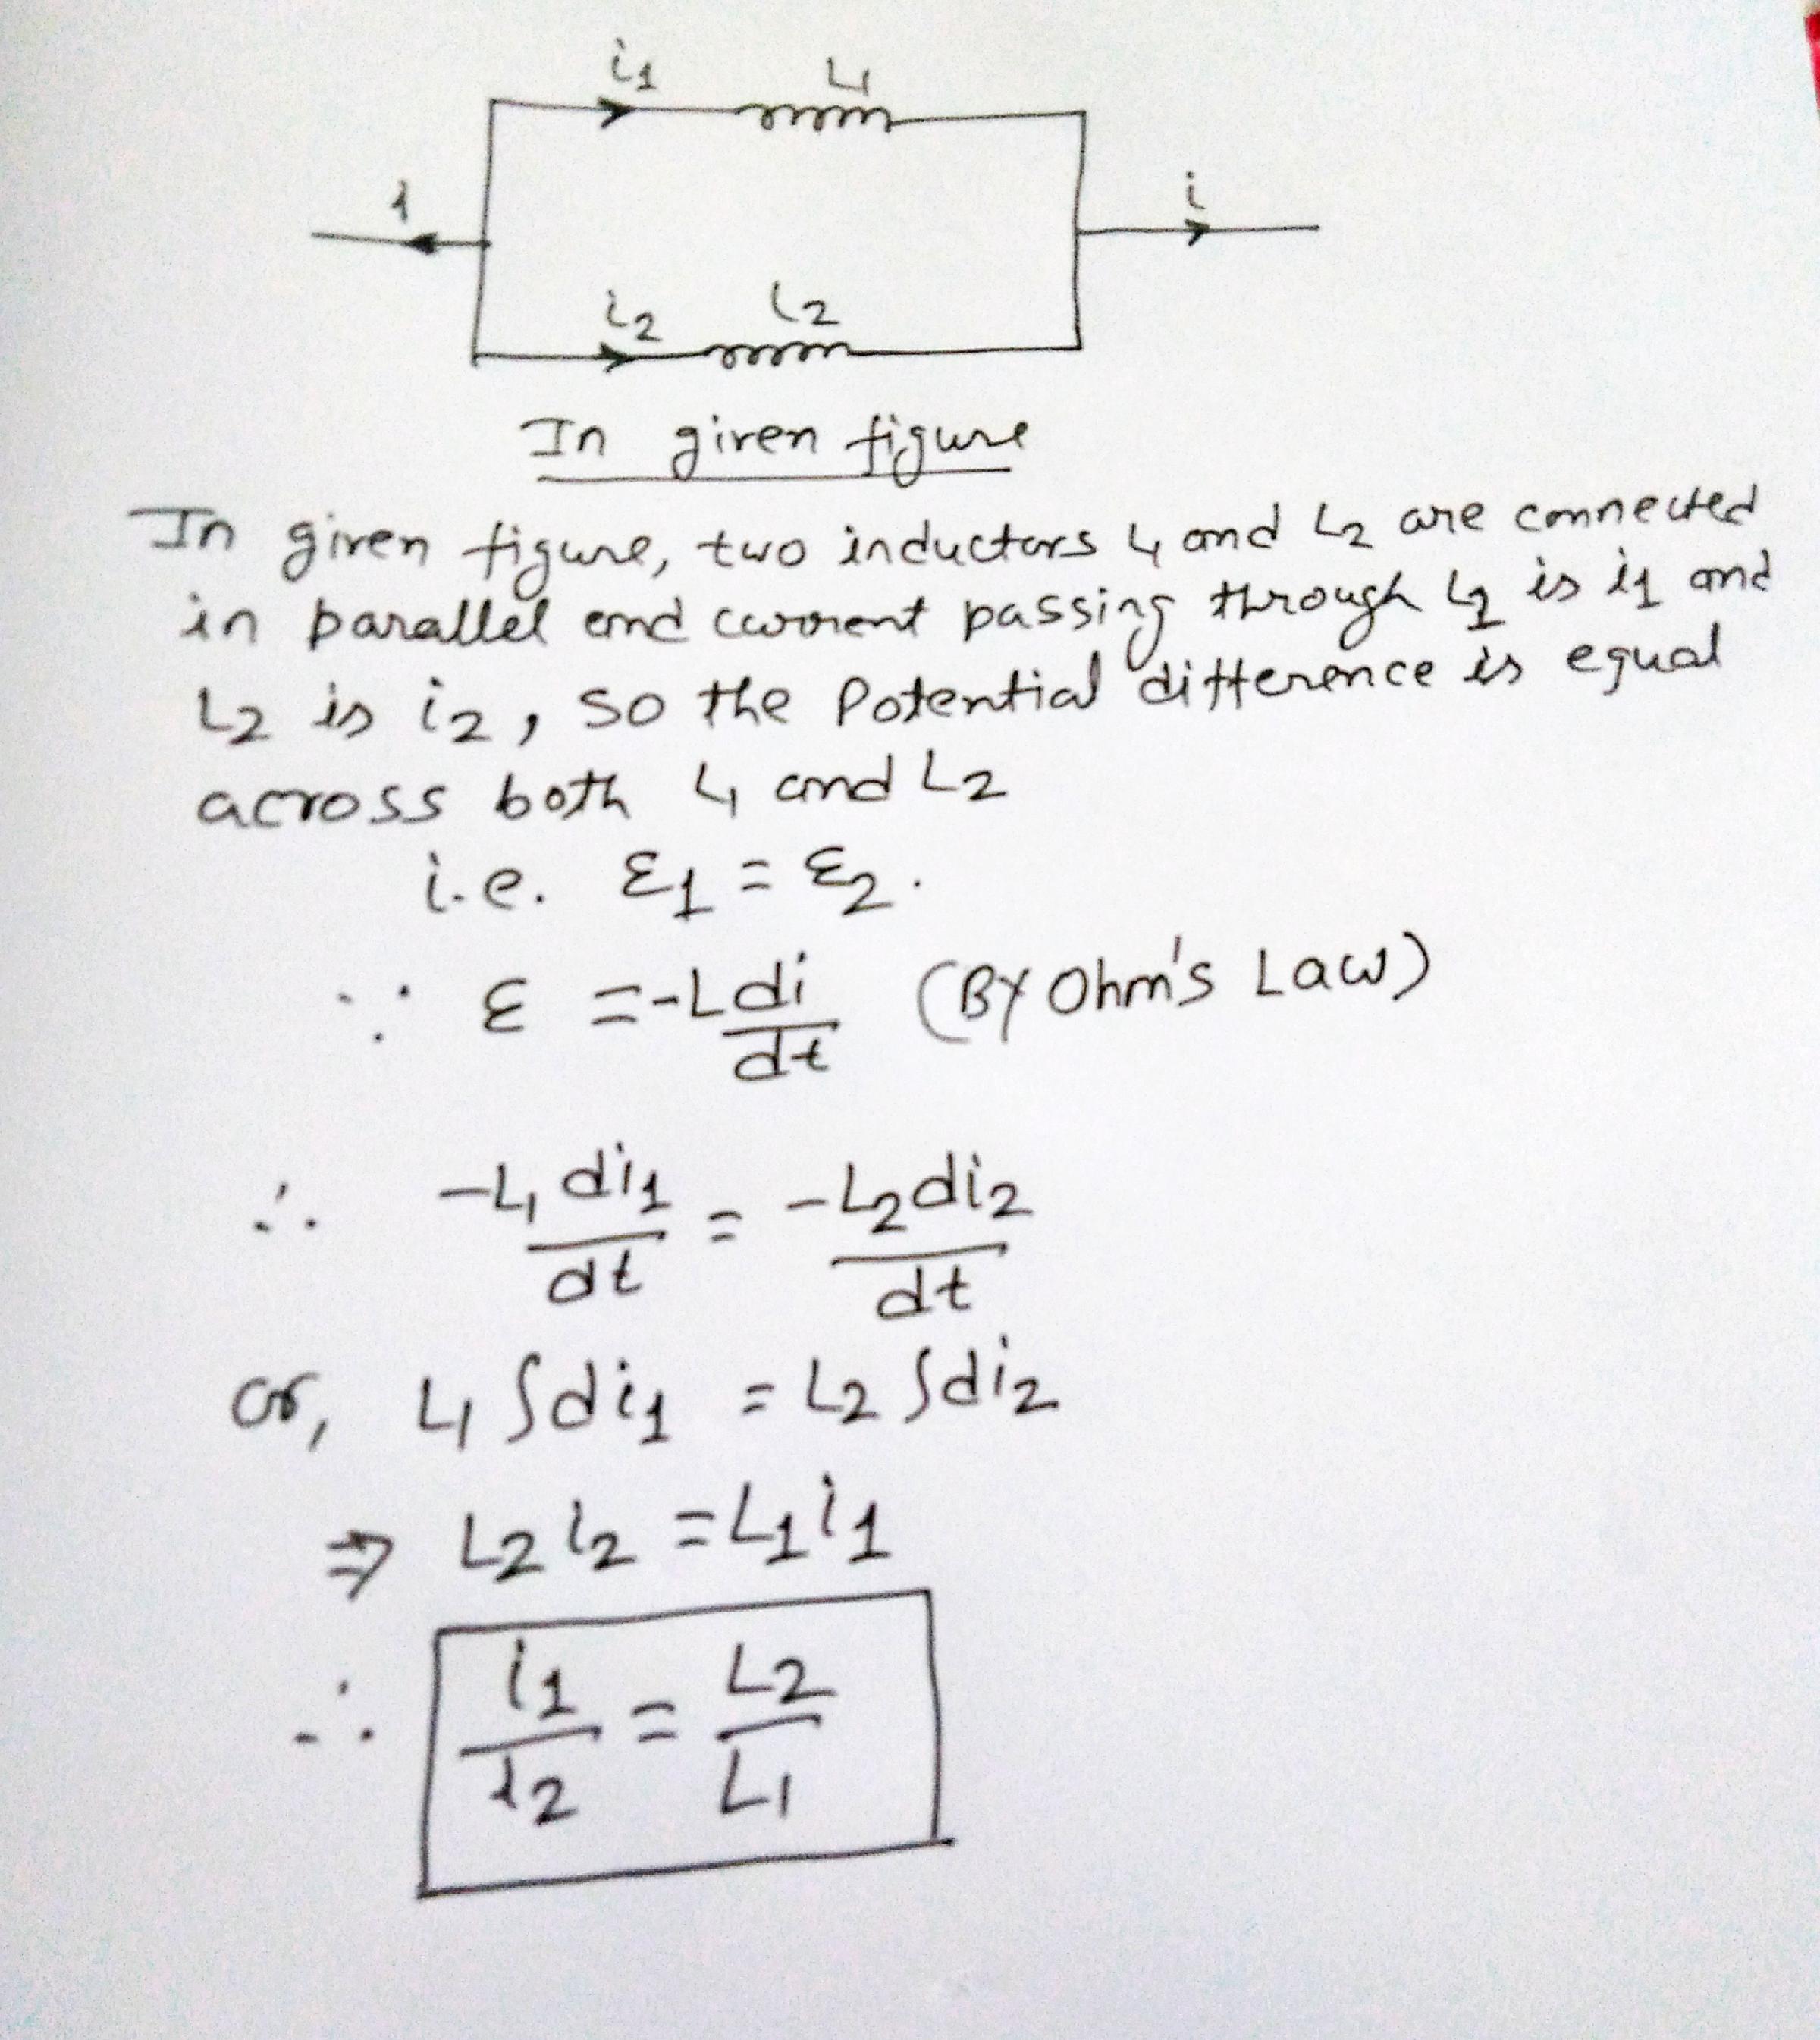 i1 L1
i i
i2 L2
In given figure
In given figure, two inductors L1 and L2 are connected
in parallel and current passing through L1 is i1 and
L2 is i2, so the Potential difference is equal
across both L1 and L2
i.e. ε1 = ε2.
∵ ε = -L di/dt (By Ohm's Law)
∴ -L1 di1/dt = -L2 di2/dt
or, L1 ∫di1 = L2 ∫di2
⇒ L2 i2 = L1 i1
∴ i1/i2 = L2/L1